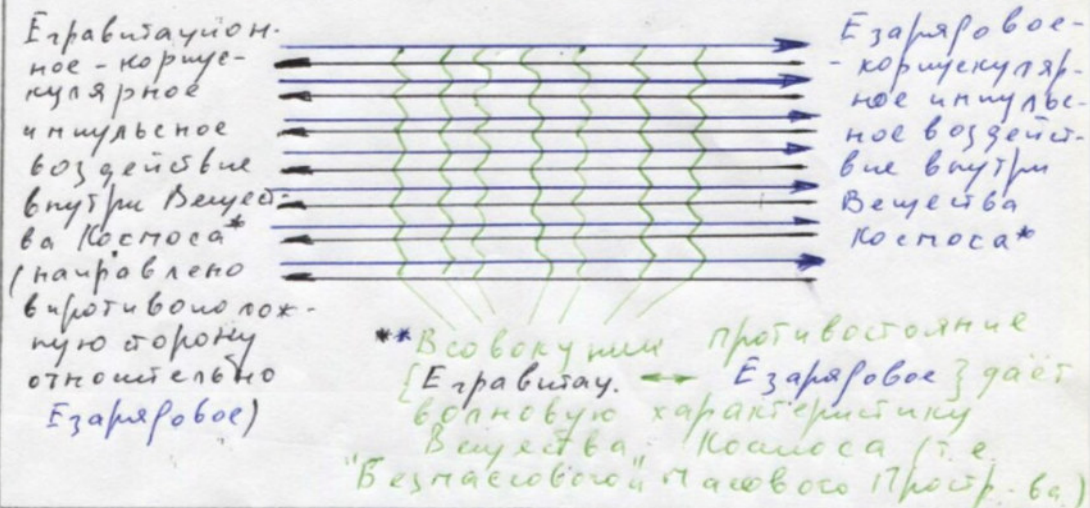 Eгравитацион-
ное - корпус-
кулярное
импульсное
воздействие
внутри Вещест-
ва Космоса*
(направлено
в противополож-
ную сторону
относительно
Eзарядовое)
Eзарядовое-
- корпускуляр-
ное импульс-
ное воздейст-
вие внутри
Вещества
Космоса*
**В совокупии противостояние
[Eгравитац. ↔ Eзарядовое] даёт
волновую характеристику
Вещества Космоса (т.е.
"Безмассового" Массового Простр-ва)